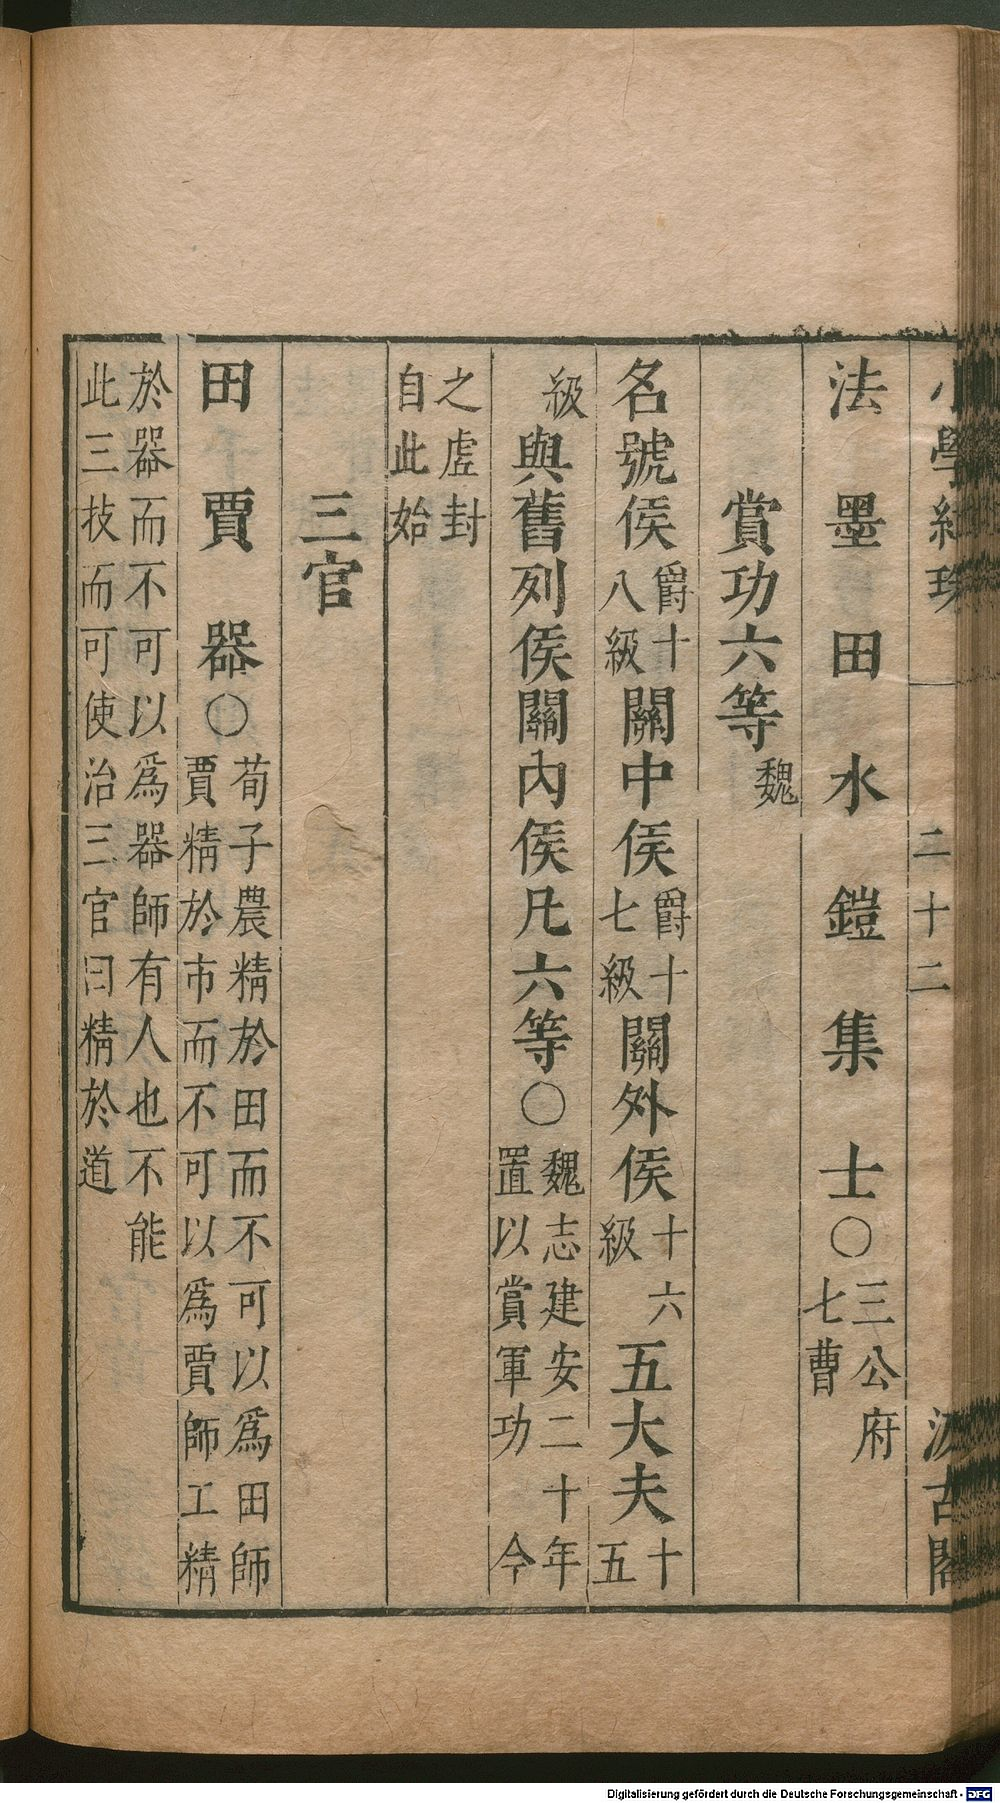 小學紺珠 二十二 汲古閣
法墨田水鎧集士○三公府七曹
賞功六等魏
名號侯爵十八級關中侯爵十七級關外侯十六級五大夫十五
級與舊列侯關內侯凡六等○魏志建安二十年置以賞軍功今
之虛封自此始
三官
田賈器○荀子農精於田而不可以爲田師賈精於市而不可以爲賈師工精
於器而不可以爲器師有人也不能此三技而可使治三官曰精於道
Digitalisierung gefördert durch die Deutsche Forschungsgemeinschaft - DFG